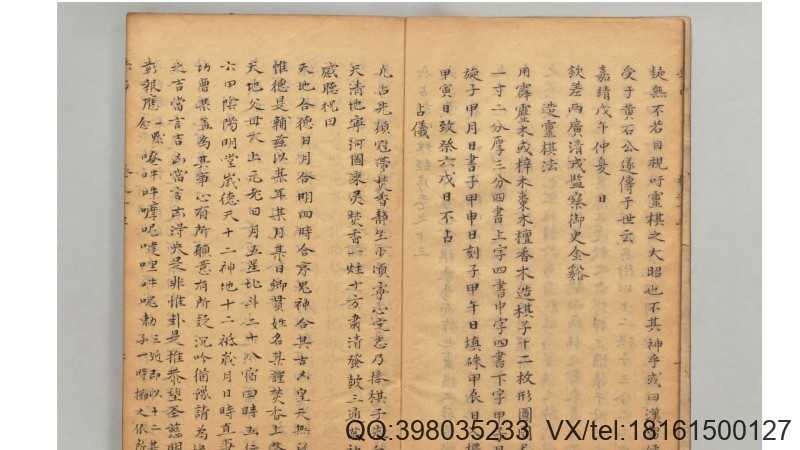 疑無不若目視吁靈棋之大昭也不其神乎或曰漢
受于黄石公遂傳于世云
嘉靖戊午仲夏 日
欽差兩廣清戎監察御史金谿
造靈棋法
用霹靂木或梓木棗木檀香木造棋子十二枚形圓
一寸二分厚三分四書上字四書中字四書下字甲子日
旋子甲月日書子甲申日刻子甲午日填硃甲辰日
甲寅日致祭六戊日不占
占儀
凡占先須冠帶焚香靜坐少頃寧心定慮乃捧棋子
天清地寧河圖秉靈焚香一炷十方肅清發鼓三通
咸聴祝曰
天地合德日月合明四時合序鬼神合其吉凶皇天無
惟德是輔兹以某年某月某日鄉貫姓名某謹焚香上啓
天地父母太上元老日月五星北斗二十八宿四時五行
六甲陰陽明堂歲德天十二神地十二祇歲月日時直事
功曹某盖為某事心有所願意有所疑沉吟猶豫請為
之吉當言吉凶當言凶得失是非惟卦是推恭望聖慈明
彰報應
QQ:398035233 VX/tel:18161500127